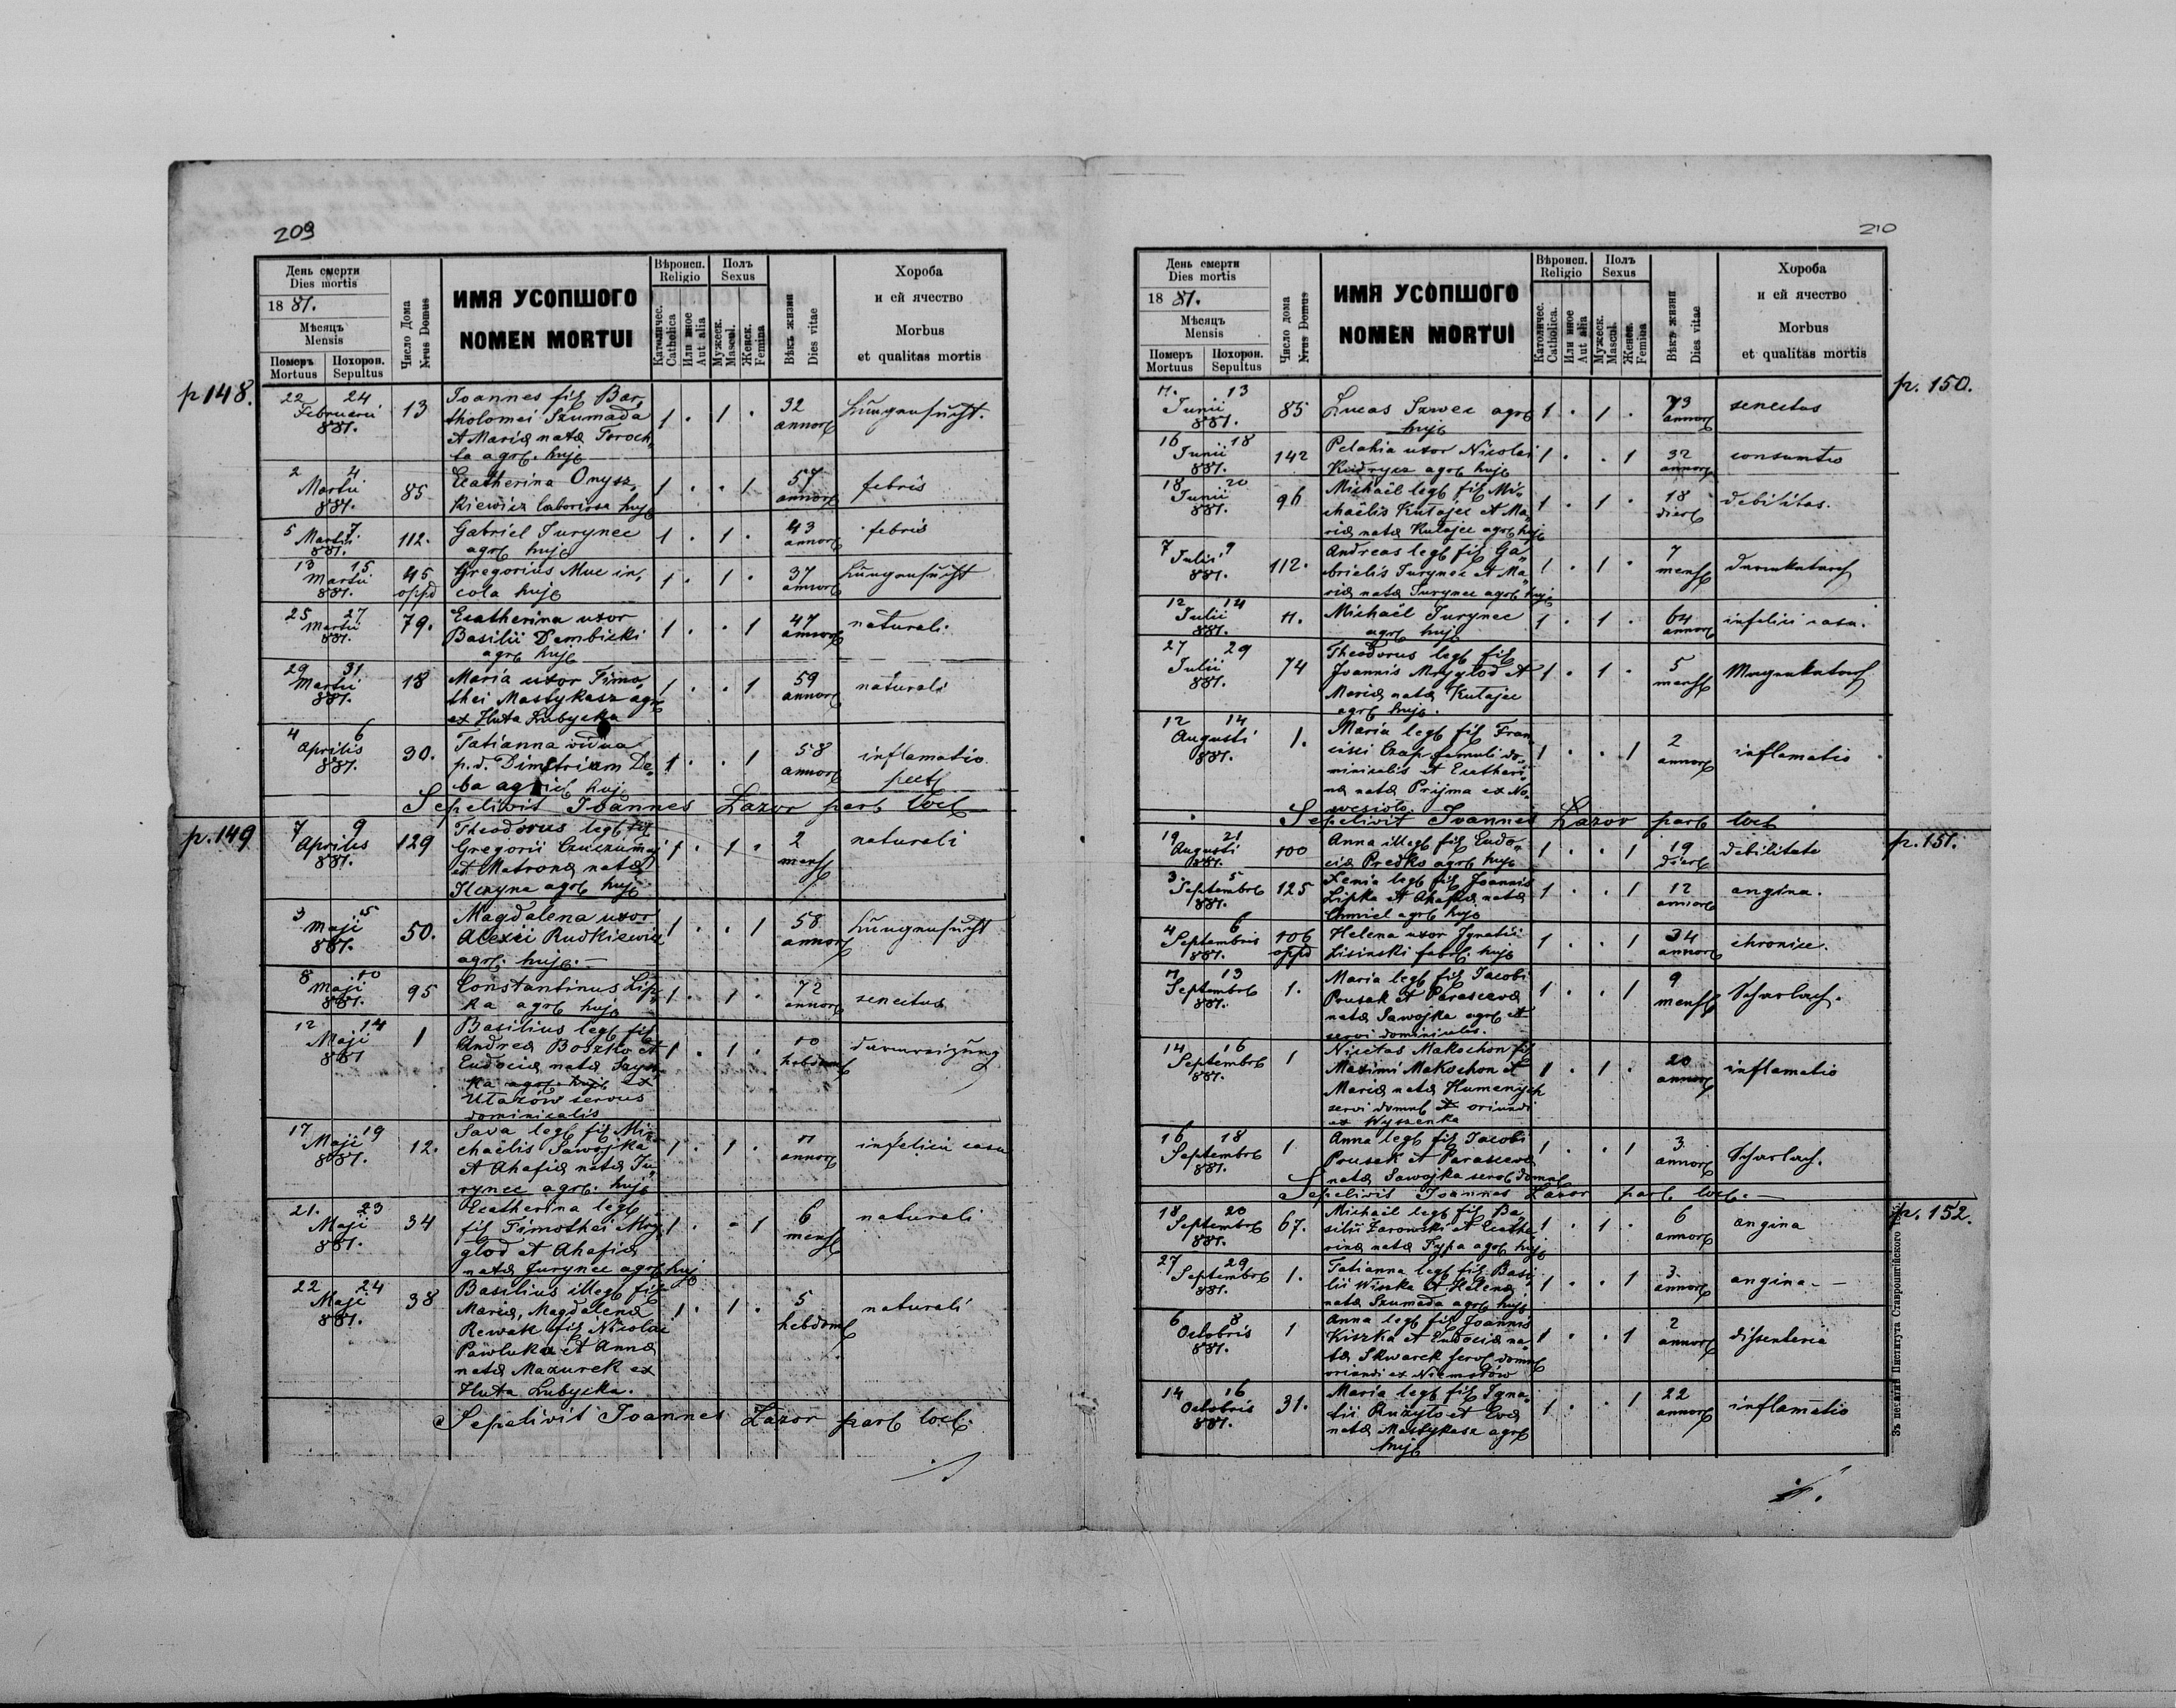 209
День смерти
Dies mortis
1881.
Мѣсяцъ
Mensis
Померъ
Mortuus
Похорон.
Sepultus
Число Дома
Nrus Domus
ИМЯ УСОПШОГО
NOMEN MORTUI
Вѣроисп.
Religio
Католичес.
Catholica
Или иное
Aut alia
Полъ
Sexus
Мужеск.
Mascul.
Женск.
Femina
Вѣкъ жизни
Dies vitae
Хороба
и ей ячество
Morbus
et qualitas mortis
p 148.
22 24
Februarii
881.
13
Joannes fil Bar,
tholomei Szumada
et Mariæ natæ Toroch,
ta agr. huj
1 . 1 .
32
annor
Lungensucht.
2 4
Martii
881.
85
Ecatherina Onysz,
kiewicz laboriosa huj
1 . . 1
57
annor
febris
5 7
Martii
881.
112.
Gabriel Jurynec
agr huj
1 . 1 .
43
annor
febris
13 15
Martii
881.
45
opp
Gregorius Muc in,
cola huj
1 . 1 .
37
annor
Lungensucht
25 27
Martii
881.
79.
Ecatherina uxor
Basilii Dembicki
agr huj
1 . . 1
47
annor
naturali
29 31
Martii
881.
18
Maria uxor Timo,
thei Mastykasz agr
ex Huta Lubycka
1 . . 1
59
annor
naturali
4 6
Aprilis
881.
30.
Tatianna vidua
p.d. Dimitrium De,
ba agric huj
1 . . 1
58
annor
inflamatio
pect
Sepelivit Joannes Lazor par loc
p. 149
7 9
Aprilis
881.
129
Theodorus leg fil
Gregorii
et Matronæ natæ
agr huj
1 . 1 .
2
mens
naturali
3 5
Maji
881.
50.
Magdalena uxor
Alexii Rudkiewicz
agr. huj.
1 . . 1
58
annor
Lungensucht
8 10
Maji
881.
95
Constantinus Lip,
ka agr huj
1 . 1 .
72
annor
senectus
12 14
Maji
881
1
Basilius leg fil
Andreæ Boszko et
Eudociæ natæ
ka agr huj ex
Utazów servus
dominicalis
1 . 1 .
10
hebdom
17 19
Maji
881.
12.
Sava leg fil Mi,
chaelis Sawojka
et Ahafiæ natæ Ju,
rynec agr. huj
1 . 1 .
annor
infelici casu
21. 23
Maji
881.
34
Ecatherina leg
fil Timothei Mry,
glod et Ahafiæ
natæ Jurynec agr huj
1 . . 1
6
mens
naturali
22 24
Maji
881.
38
Basilius illeg fil
Mariæ, Magdalenæ
Rewak fil Nicolai
Pawluka et Annæ
natæ Mazurek ex
Huta Lubycka.
1 . 1 .
5
hebdom
naturali
Sepelivit Joannes Lazor par loc.
210
День смерти
Dies mortis
1881.
Мѣсяцъ
Mensis
Померъ
Mortuus
Похорон.
Sepultus
Число дома
Nrus Domus
ИМЯ УСОПШОГО
NOMEN MORTUI
Вѣроисп.
Religio
Католичес.
Catholica.
Или иное
Aut alia
Полъ
Sexus
Мужеск.
Mascul.
Женск.
Femina
Вѣкъ жизни
Dies vitae
Хороба
и ей ячество
Morbus
et qualitas mortis
p. 150.
11. 13
Junii
881.
85
Lucas Szwec agr
huj
1 . 1 .
73
annor
senectus
16 18
Junii
881.
142
Pelahia uxor Nicolai
Kudrycz agr huj
1 . . 1
32
annor
consumtio
18 20
Junii
881.
96
Michaël leg fil Mi,
chaëlis Kutajec et Ma,
riæ natæ Kutajec agr huj
1 . 1 .
18
dier
debilitas.
7 9
Julii
881.
112.
Andreas leg fil Ga,
brielis Jurynec et Ma,
riæ natæ Jurynec agr huj
1 . 1 .
7
mens
Darmkatarrh
12 14
Julii
881.
11.
Michaël Jurynec
agr huj
1 . 1 .
64
annor
infelici casu.
27 29
Julii
881.
74
Theodorus leg fil
Joannis Mryglod et
Mariæ natæ Kutajec
agr huj.
1 . 1 .
5
mens
Magenkatarrh
12 14
Augusti
881.
1.
Maria leg fil Fran,
cisci Czap famuli do,
minicalis et Ecathari,
næ natæ Prijma ex No,
wesiolo.
1 . . 1
2
annor
inflamatio
Sepelivit Joannes Lazor par loc
p. 151.
19 21
Augusti
881.
100
Anna illeg fil Eudo,
ciæ Predko agr huj
1 . . 1
19
dier
debilitate
3 5
Septembr
881.
125
Xenia leg fil Joannis
Lipka et Ahafiæ natæ
Chmiel agr huj
1 . . 1
12
annor
angina.
4 6
Septembris
881.
106
opp
Helena uxor Ignatii
Lisinski fabr. huj
1 . . 1
34
annor
chronice.
11 13
Septembr
881.
1.
Maria leg fil Jacobi
Prusak et Parascevæ
natæ Sawojka agr et
servi dominicalis.
1 . . 1
9
mens
Scharlach.
14 16
Septembr
881.
1
Nicetas Makochon fil
Maximi Makochon et
Mariæ natæ Humenych
servi domnl et oriundi
ex Wyszenka
1 . 1 .
20
annor
inflamatio
16 18
Septembr
881.
1.
Anna leg fil Jacobi
Prusak et Parascevæ
natæ Sawojka serv domnl
1 . . 1
3
annor
Scharlach.
Sepelivit Joannes Lazor par loc.
p. 152.
18 20
Septembr
881.
67.
Michaël leg fil Ba
silii Zarowski et Ecathe,
rinæ natæ Typa agr huj
1 . 1 .
6
annor
angina
27 29
Septembr
881.
1.
Tatianna leg fil Basi,
lii Wiszka et Helenæ
natæ Szumada agr huj
1 . . 1
3
annor
angina.
6 8
Octobris
881.
1
Anna leg fil Joannis
Kiszka et Eudociæ na,
tæ Skwarek serv domnl
oriundi ex Niemstów
1 . . 1
2
annor
dissenteria
14 16
Octobris
881.
31.
Maria leg fil Igna,
tii Ruzyło et Evæ
natæ Mastykasz agr
huj
1 . . 1
22
annor
inflamatio
Зъ печатни Института Ставропигійского